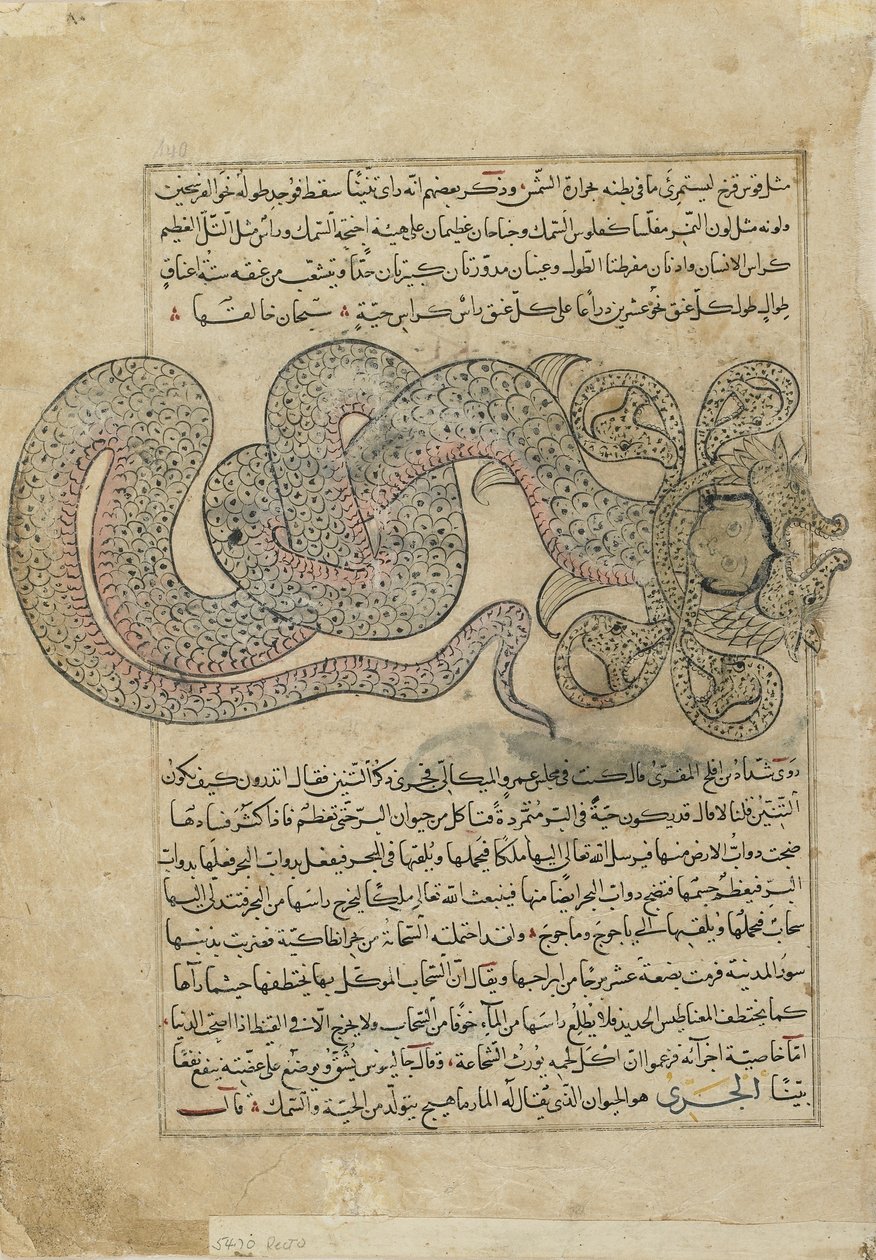 140
مثل قوس قزح ليستمرئ ما فى بطنه بحرارة الشمس وذكر بعضهم انه راى تنينًا سقط فوجد طوله نحوا لفرسخين
ولونه مثل لون النمر مفلسا كفلوس السمك وجناحان عظيمان على هيئة اجنحة السمك وراس مثل التل العظيم
كراس الانسان واذنان مفرطتا الطول وعينان مدورتان كبيرتان جدًا ويتشعب من عنقه ستة اعناق
طوال طول كل عنق نحو عشرين ذراعا على كل عنق راس كراس حية سبحان خالقها
روى شداد بن افلح المقرئ قال كنت فى مجلس عمرو الميكالى فجرى ذكر التنين فقال اتدرون كيف يكون
التنين قلنا لا قال قد يكون حية فى البر متمردة فتاكل من حيوان البر حتى تعظم فاذا كثر فسادها
ضجت دواب الارض منها فيرسل الله تعالى اليها ملكا فيحملها ويلقيها فى البحر فيفعل بدواب البحر فعلها بدواب
البر فيعظم جسمها فتضج دواب البحر ايضا منها فيبعث الله تعالى ملكا ليخرج راسها من البحر فتتدلى اليها
سحاب فيحملها ويلقيها الى ياجوج وماجوج ولقد احتملته السحابة من بحر انطاكية فضربت بذنبها
سور المدينة فرمت بضعة عشر برجا من ابراجها ويقال ان السحاب الموكل بها يختطفها حيثما رآها
كما يختطف المغناطيس الحديد فلا يطلع راسها من الماء خوفا من السحاب ولا يخرج الا فى القيظ اذا اصحت الدنيا
اما خاصية اجزائه فزعموا ان اكل لحمه يورث الشجاعة وقال جالينوس يشق ويوضع على عضته ينفع نفعًا
بينًا الجرى هو الحيوان الذى يقال له المارماهيج يتولد من الحية والسمك قال
5470 Recto